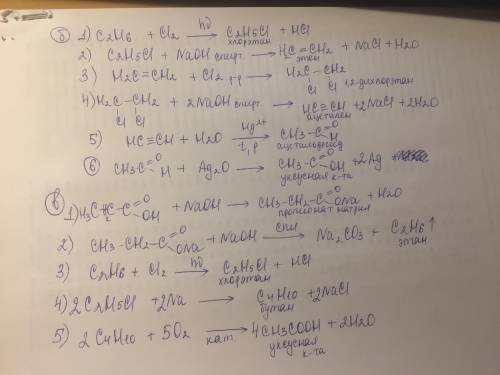 б) 1) C2H6 + Cl2 —hν→ C2H5Cl + HCl
хлорэтан
2) C2H5Cl + NaOH спирт. → H2C=CH2 + NaCl + H2O
этан
3) H2C=CH2 + Cl2 р-р → H2C–CH2
Cl Cl 1,2 дихлорэтан
4) H2C–CH2 + 2NaOH спирт. → HC≡CH + 2NaCl + 2H2O
Cl Cl ацетилен
5) HC≡CH + H2O —Hg2+ t, p→ CH3–C=O H
ацетальдегид
6) CH3–C=O H + Ag2O → CH3–C=O OH + 2Ag
уксусная к-та
в) 1) H3C–C H2–C=O OH + NaOH → CH3–CH2–C=O ONa + H2O
пропионат натрия
2) CH3–CH2–C=O ONa + NaOH —спл→ Na2CO3 + C2H6↑
этан
3) C2H6 + Cl2 —hν→ C2H5Cl + HCl
хлорэтан
4) 2C2H5Cl + 2Na → C4H10 + 2NaCl
бутан
5) 2C4H10 + 5O2 —кат.→ 4CH3COOH + 2H2O
уксусная
к-та